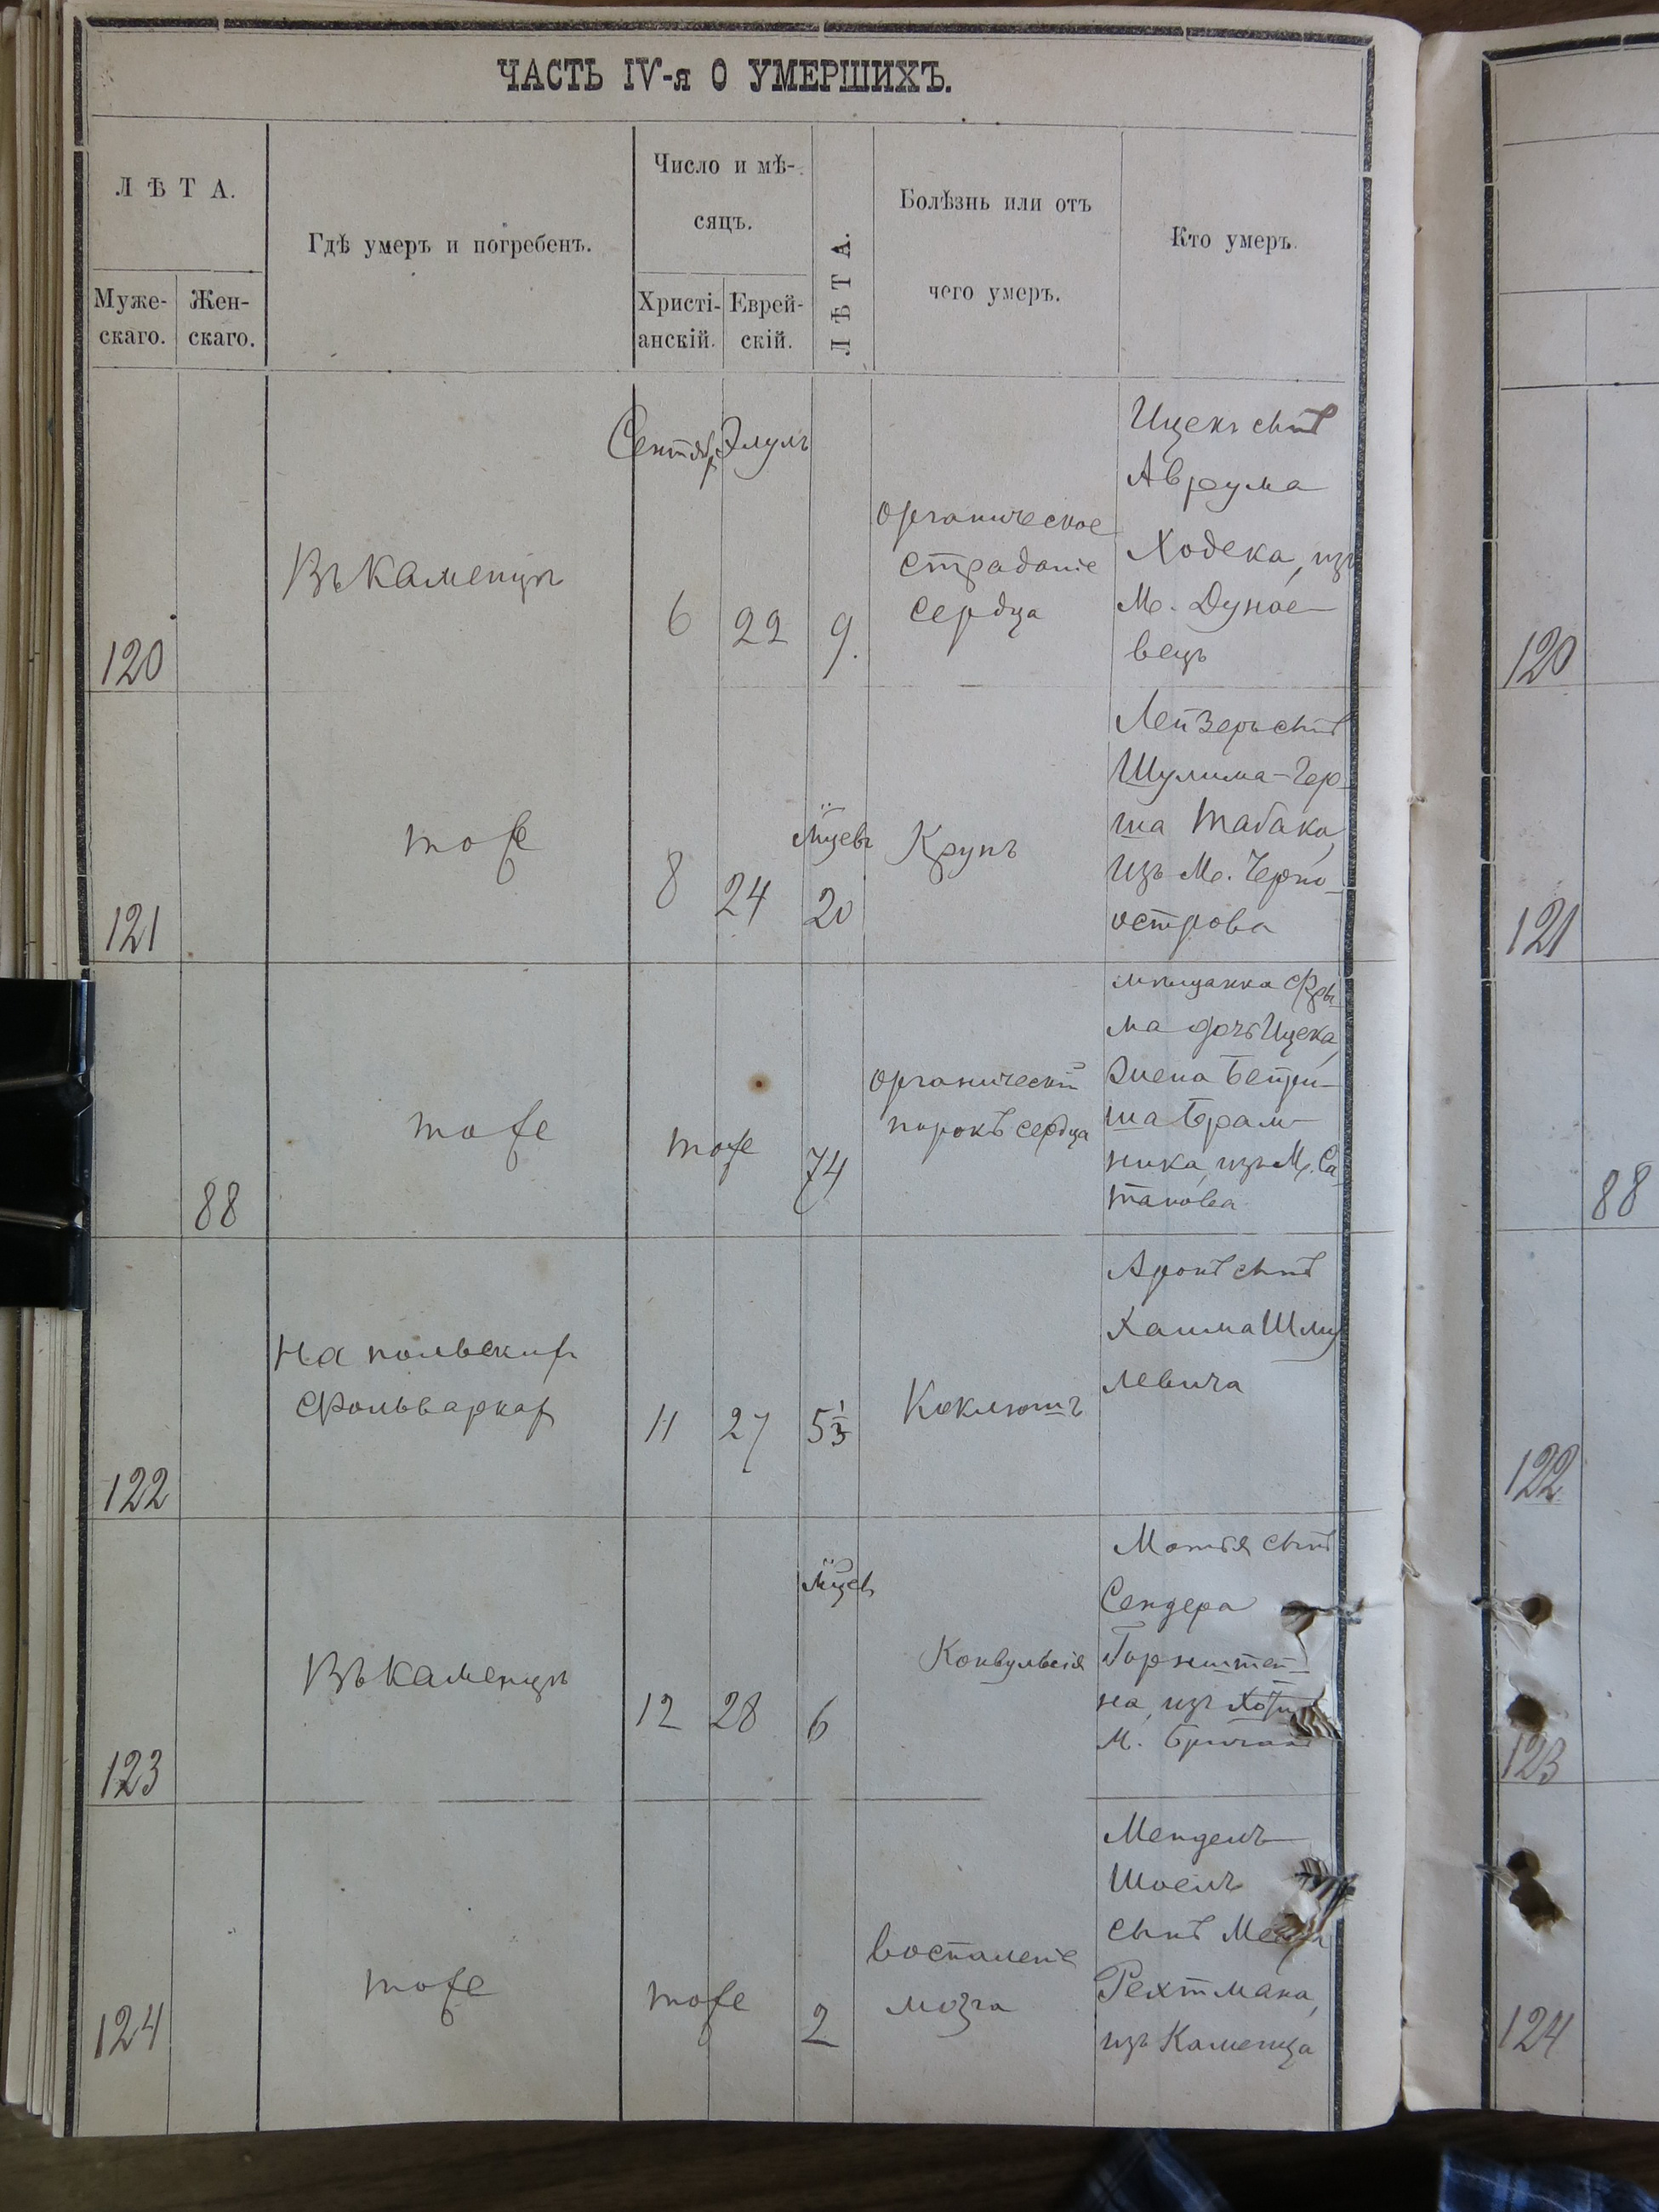 ЧАСТЬ IV-я О УМЕРШИХЪ.
ЛѢТА.
Муже-
скаго.
Жен-
скаго.
Гдѣ умеръ и погребенъ.
Число и мѣ-
сяцъ.
Христі-
анскій.
Еврей-
скій.
ЛѢТА.
Болѣзнь или отъ
чего умеръ.
Кто умеръ.
120
Въ Каменцѣ
Сентяб
Элулъ
6
22
9.
органическое
страданіе
сердца
Ицекъ сынъ
Аврума
Ходека, изъ
М. Дунае-
вецъ
120
121
тоже
8
24
мцевъ
20
Крупъ
Лейзеръ сынъ
Шулима-Гер-
ша Табака,
изъ М. Черно-
острова
121
88
тоже
тоже
74
органическій
порокъ сердца
мѣщанка Фры-
ма дочь Ицека,
жена
ша Брам-
ника, изъ М. Са-
танова
88
122
На польскихъ
фольваркахъ
11
27
5 1/3
Коклюшъ
Аронъ сынъ
Хаима Шму
левича
122
123
Въ Каменцѣ
12
28
мцев
6
Конвульсія
Мотя сынъ
Сендера
Горнштей-
на, изъ
М. Бричанъ
123
124
тоже
тоже
2
воспаленіе
мозга
Мендель
Шоель
сынъ
Рехтмана,
изъ Каменца
124